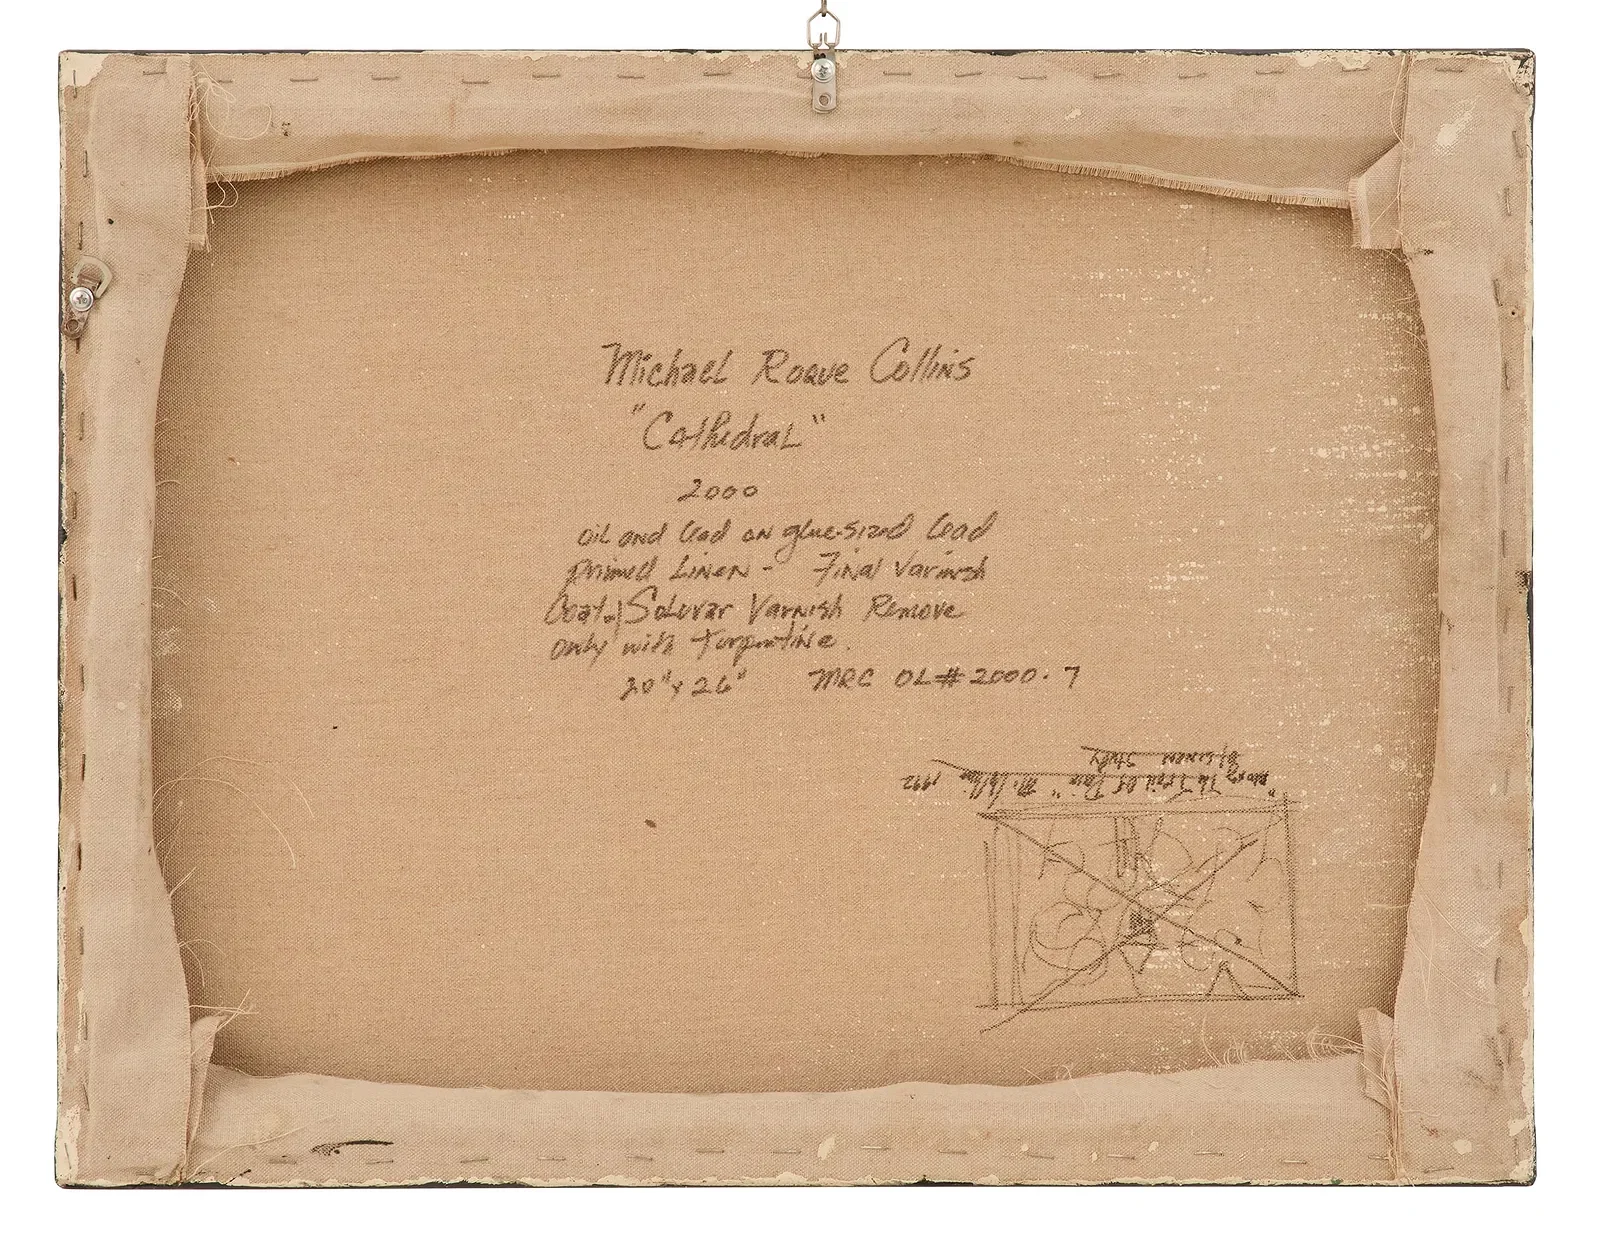 Michael Roque Collins
"Cathedral"
2000
oil and lead on glue-sized lead
primed Linen - Final Varnish
Coat. Soluvar Varnish Remove
only with turpentine.
20" x 26" MRC OL# 2000.7
Study
"Along The Trail Of Pain" M. Collins 1992